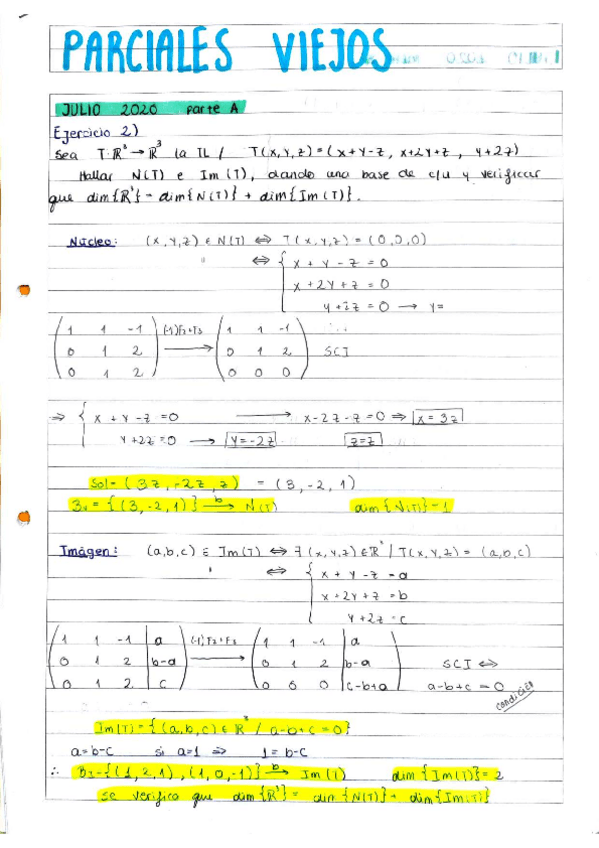 PARCIALES VIEJOS
JULIO 2020 parte A
Ejercicio 2)
Sea T: R³ → R³ la TL / T(x,y,z) = (x+y-z, x+2y+z, y+2z)
Hallar N(T) e Im(T), dando una base de c/u y verificar
que dim{R³} = dim{N(T)} + dim{Im(T)}.
Núcleo: (x,y,z) ∈ N(T) ⇔ T(x,y,z) = (0,0,0)
⇔ { x + y - z = 0
x + 2y + z = 0
y + 2z = 0 → y=
( 1 1 -1 ) (-1)F2+F3 ( 1 1 -1 )
( 0 1 2 ) → ( 0 1 2 ) SCI
( 0 1 2 ) ( 0 0 0 )
⇒ { x + y - z = 0 → x - 2z - z = 0 ⇒ x = 3z
y + 2z = 0 → y = -2z z = z
Sol = (3z, -2z, z) = (3, -2, 1)
= {(3, -2, 1)} →b N(T) dim{N(T)} = 1
Imágen: (a,b,c) ∈ Im(T) ⇔ ∃ (x,y,z) ∈ R³ / T(x,y,z) = (a,b,c)
⇔ { x + y - z = a
x + 2y + z = b
y + 2z = c
( 1 1 -1 | a ) (-1)F2+F3 ( 1 1 -1 | a )
( 0 1 2 | b-a ) → ( 0 1 2 | b-a ) SCI ⇔
( 0 1 2 | c ) ( 0 0 0 | c-b+a ) a-b+c = 0
condición
Im(T) = {(a,b,c) ∈ R³ / a-b+c = 0}
a = b-c si a=1 ⇒ 1 = b-c
∴ BI = {(1,2,1), (1,0,-1)} →b Im(T) dim{Im(T)} = 2
se verifica que dim{R³} = dim{N(T)} + dim{Im(T)}